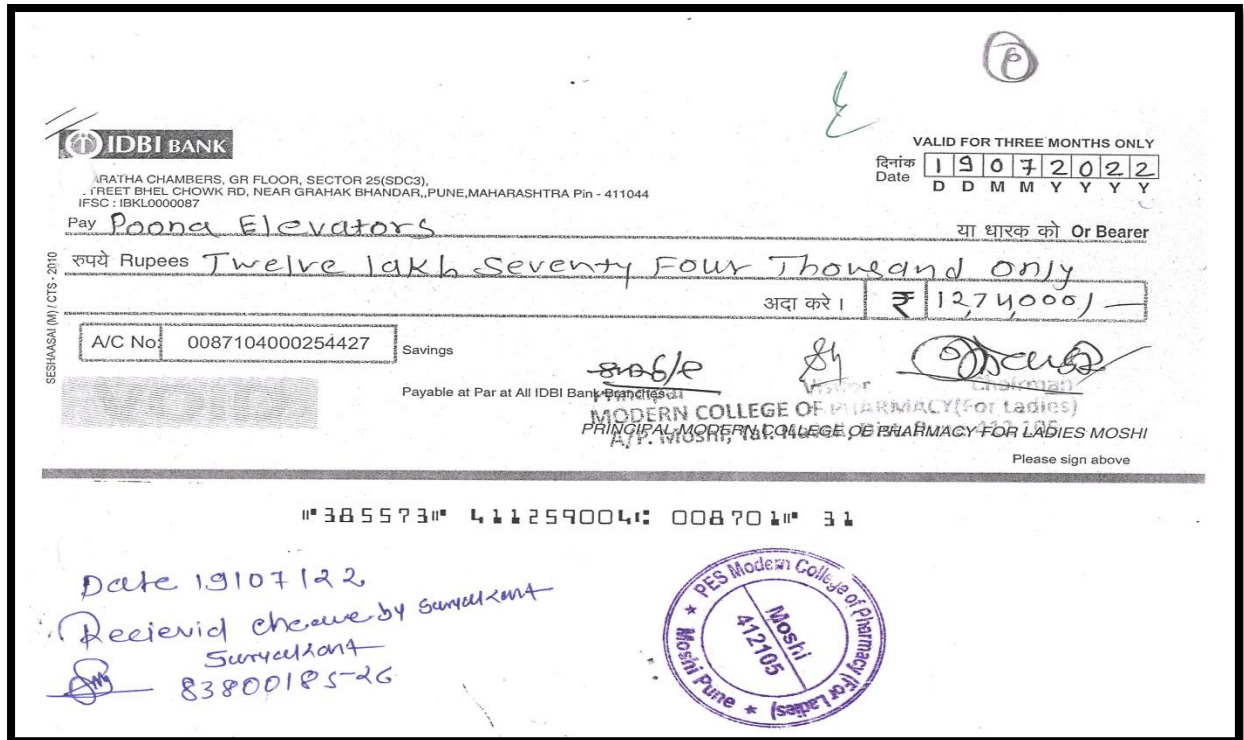 IDBI BANK
VALID FOR THREE MONTHS ONLY
दिनांक
Date
19072022
D D M M Y Y Y Y
ARATHA CHAMBERS, GR FLOOR, SECTOR 25(SDC3),
TREET BHEL CHOWK RD, NEAR GRAHAK BHANDAR,,PUNE,MAHARASHTRA Pin - 411044
IFSC : IBKL0000087
Pay Poona Elevators या धारक को Or Bearer
रुपये Rupees Twelve lakh Seventy Four Thousand only
अदा करे । ₹ 12,74,000/-
SESHAASAI (M) / CTS - 2010
A/C No. 0087104000254427 Savings
Payable at Par at All IDBI Bank Branches
Principal Visitor Chairman
MODERN COLLEGE OF PHARMACY(For Ladies)
PRINCIPAL MODERN COLLEGE OF PHARMACY FOR LADIES MOSHI
A/P. Moshi, Tal.
Please sign above
⑈385573⑈ 411259004⑆ 008701⑈ 31
Date 19/07/22
Recievid cheave by Suryakant
Suryakant
83800185-26
PES Modern College of Pharmacy (For Ladies)
Moshi
412105
★ Moshi Pune ★